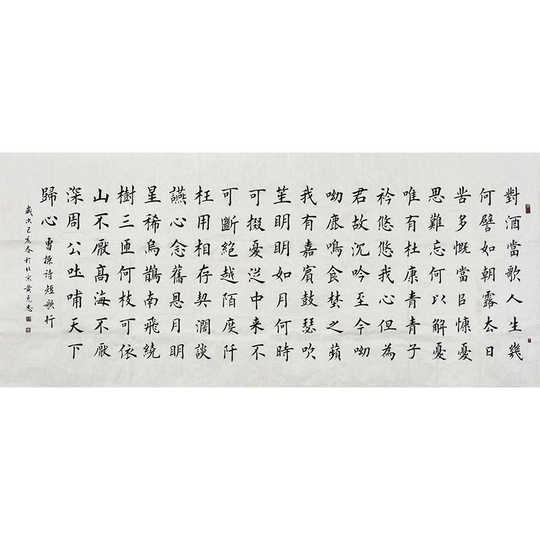 對酒當歌人生幾
何譬如朝露去日
苦多慨當以慷憂
思難忘何以解憂
唯有杜康青青子
衿悠悠我心但為
君故沈吟至今呦
呦鹿鳴食埜之蘋
我有嘉賓鼓瑟吹
笙明明如月何時
可掇憂從中来不
可斷絕越陌度阡
枉用相存契濶談
讌心念舊恩月明
星稀烏鵲南飛繞
樹三匝何枝可依
山不厭高海不厭
深周公吐哺天下
歸心 曹操詩短歌行
歲次己亥春於北京黃